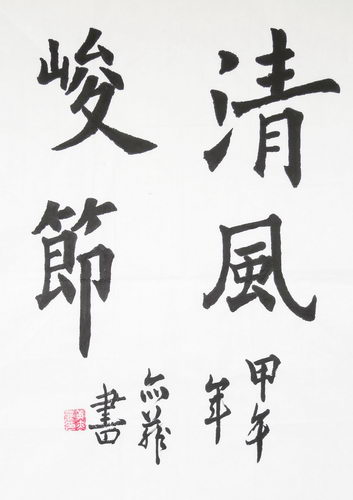 清風
峻節
甲午
年
亦龍
書